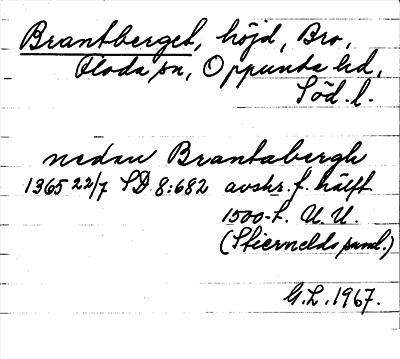 Brantberget, höjd, Bro,
Floda sn, Oppunda hd,
Söd. l.
nedan Brantabergh
1365 22/7 SD 8:682 avskr. f. hälft.
1500-t. U. U.
(Stiernelds saml.)
G.L. 1967.